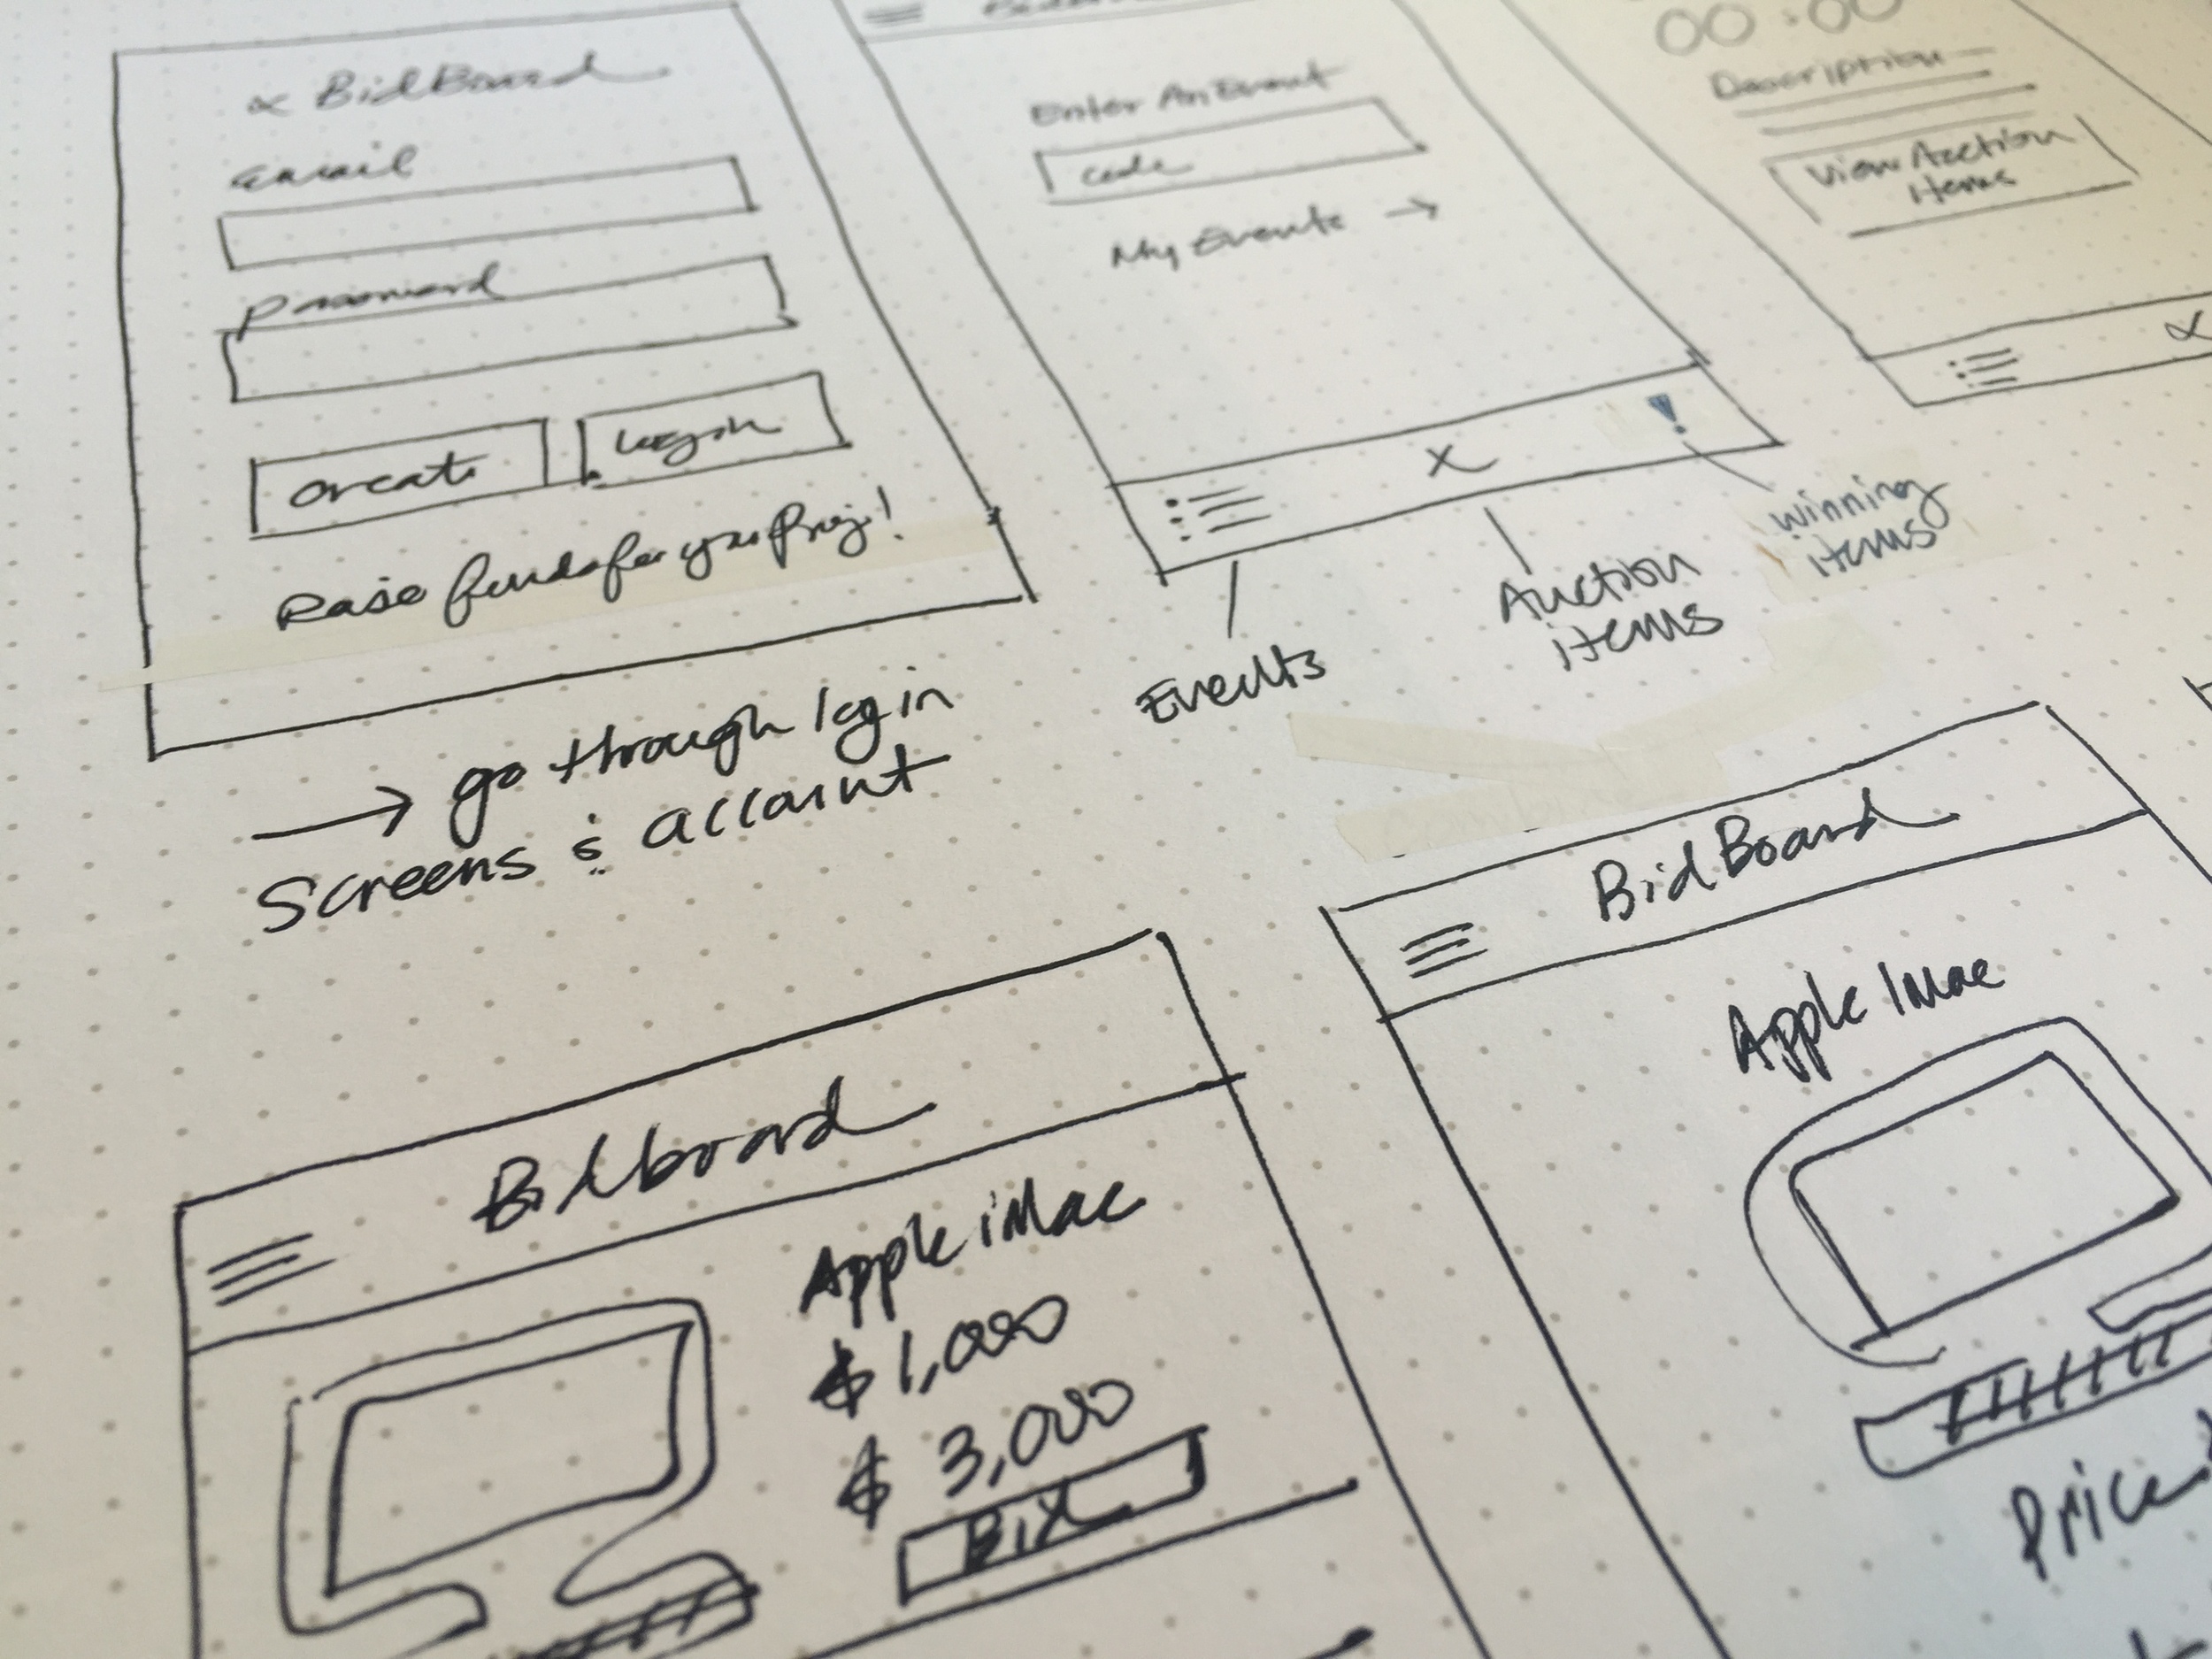 BidBoard
Email
Password
Create
Login
Raise funds for your Proj!
→ go through login
Screens & account
Enter An Event
code
My Events →
Events
Auction
items
winning
items
00:00
Description
View Auction
Items
Bidboard
Apple iMac
$1,000
$3,000
Bid
BidBoard
Apple iMac
Price